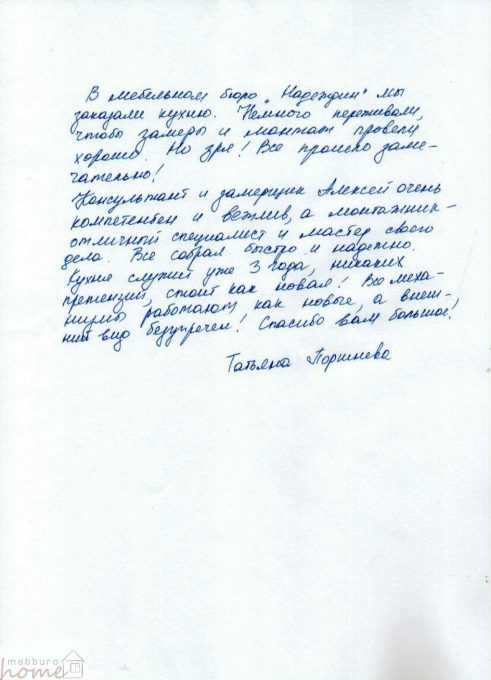 В мебельном бюро „Надеждин" мы
заказали кухню. Немного переживали,
чтобы замеры и монтаж провели
хорошо. Но зря! Все прошло заме-
чательно!
Консультант и замерщик Алексей очень
компетентен и вежлив, а монтажник-
отличный специалист и мастер своего
дела. Все собрал быстро и надежно.
Кухня служит уже 3 года, никаких
претензий, стоит как новая! Все меха-
низмы работают как новые, а внеш-
ний вид безупречен! Спасибо вам большое!
Татьяна Поршнева
mebburo
home